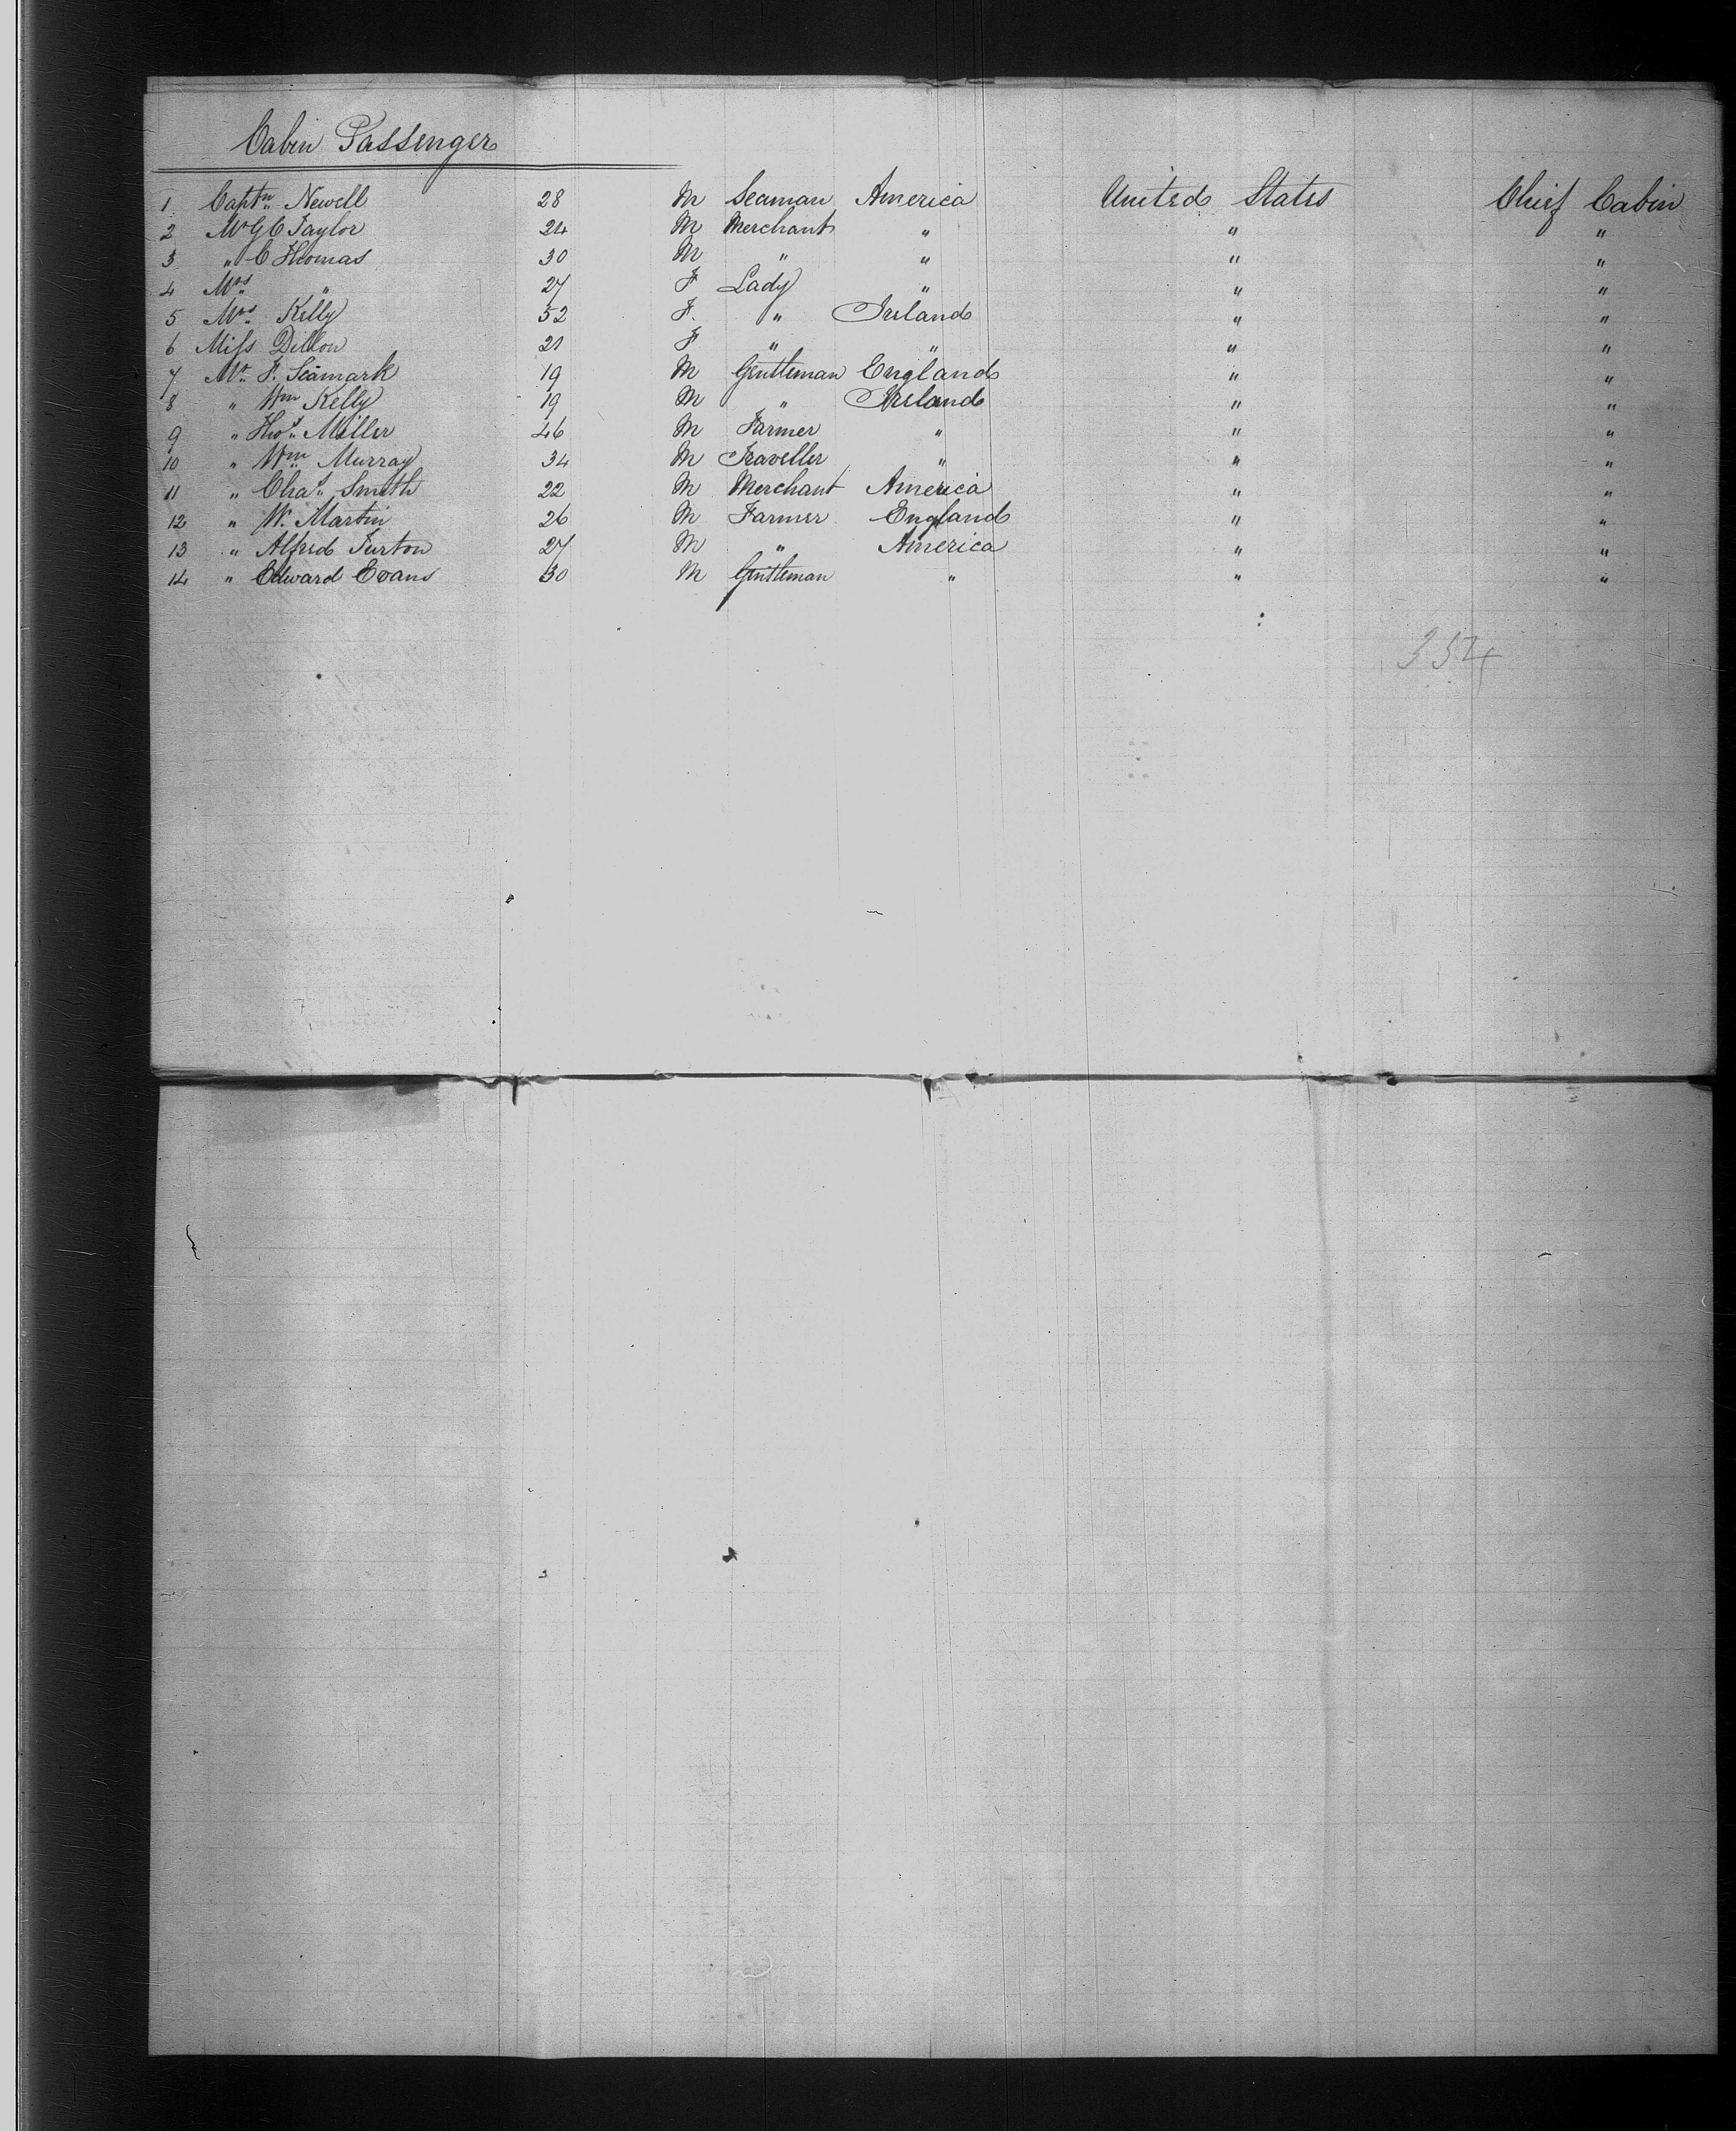 Cabin Passenger
1 Captn Newell 28 M Seaman America United States Chief Cabin
2 Mr G C Taylor 24 M Merchant " " "
3 " C Thomas 30 M " " " "
4 Mrs " 27 F Lady " " "
5 Mrs Kelly 52 F. " Ireland " "
6 Miss Dillon 21 F " " " "
7 Mr. F. Seamark 19 M Gentleman England " "
8 " Wm Kelly 19 M " Ireland " "
9 " Thos. Miller 46 M Farmer " " "
10 " Wm Murray 34 M Traveller " " "
11 " Chas. Smith 22 M Merchant America " "
12 " W. Martin 26 M Farmer England " "
13 " Alfred Turton 27 M " America " "
14 " Edward Evans 30 M Gentleman " " "
354